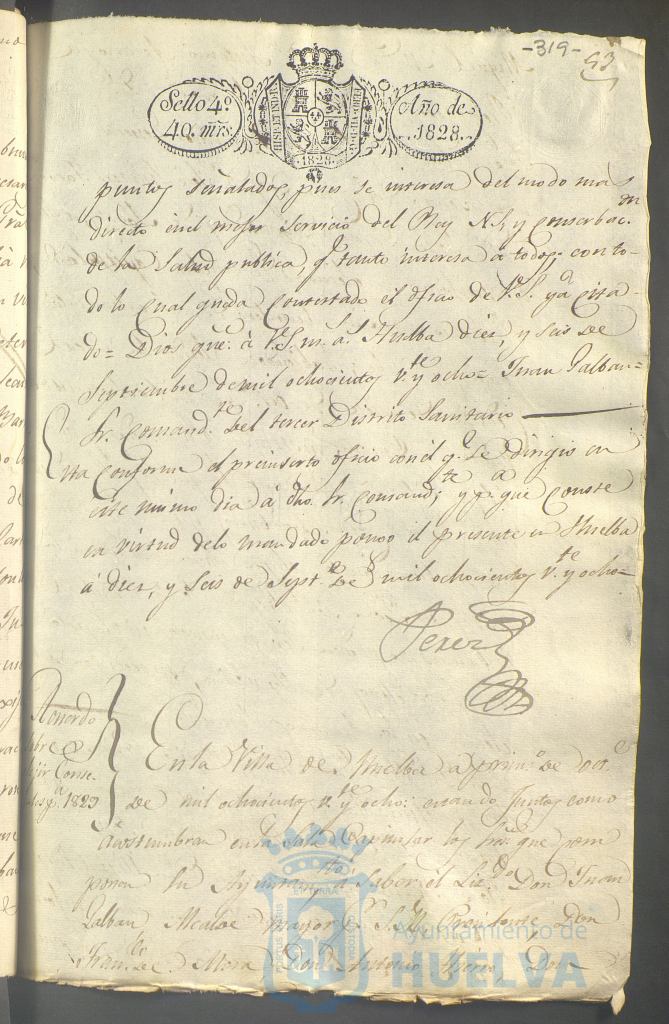 -319-
53
Sello 4º
40. mrs.
Año de
1828.
HISP. ET IND. R.
1828.
puntos señalados, pues se interesa del modo mas
directo en el mejor servicio del Rey N.S, y conserbac.on
de la Salud publica, q.e tanto interesa a todos. con to-
do lo qual queda contextado el oficio de V.S. ya cita-
do= Dios gue. á V.S. m. a.s Huelba diez, y seis de
Septiembre de mil ochocientos v.te y ocho= Juan Galban=
Sr. Comand.te del tercer Distrito Sanitario
Esta conforme el preinserto oficio con el q.e se dirigio en
este mismo dia á dho. Sr. Comand.te; y p.a que conste
en virtud de lo mandado pongo el presente en Huelba
á diez, y seis de Sept.e de mil ochocientos v.te y ocho=
Perez
Acuerdo
sobre
elejir Conce-
p.a 1829
En la Villa de Huelba a prim.o de oct.e
de mil ochocientos v.te y ocho: estando Juntos como
acostumbran en la Sala Capitular los Sres. que com
ponen su Ayuntam.to á Saber el Lic.do Don Juan
Galban Alcalde mayor
Fran.co de Mora, Don Antonio Don
Ayuntamiento de
HUELVA